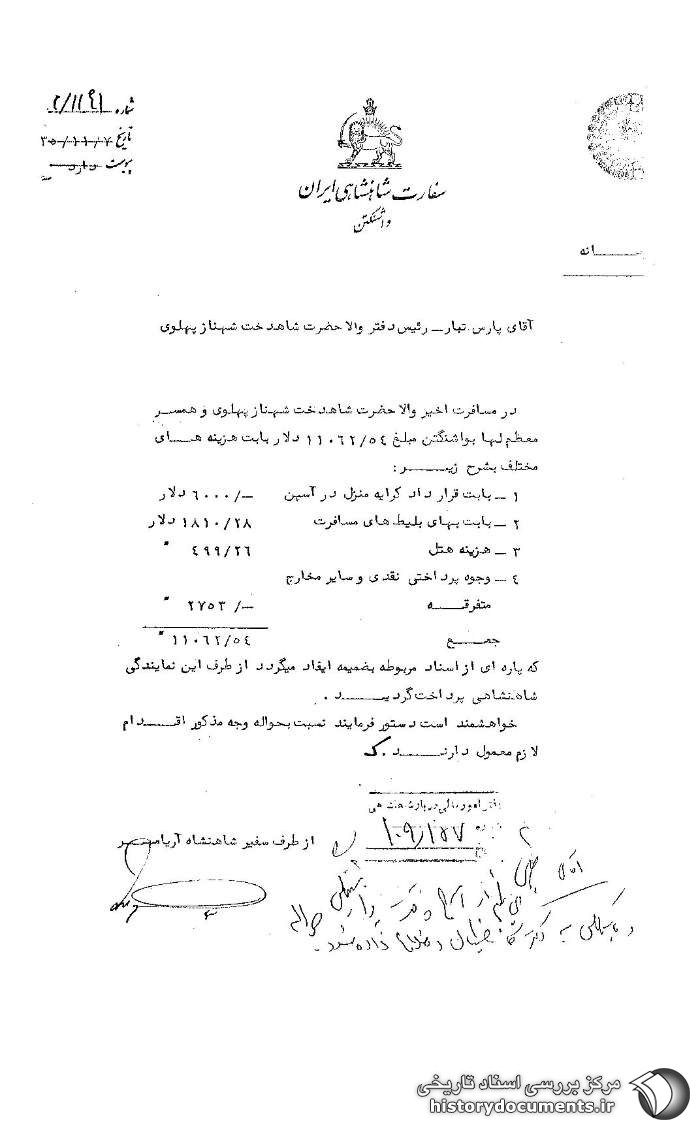 شماره ۲/۱۱۹۱
تاریخ ۳۵/۱۱/۷
پیوست دارد
سفارت شاهنشاهی ایران
واشنگتن
ـانه
آقای پارس تبار ـ رئیس دفتر والاحضرت شاهدخت شهناز پهلوی
در مسافرت اخیر والاحضرت شاهدخت شهناز پهلوی و همسر
معظم لها بواشنگتن مبلغ ۱۱۰۶۲/۵٤ دلار بابت هزینه هـای
مختلف بشرح زیـر :
۱ ـ بابت قرار داد کرایه منزل در آسپن ۶۰۰۰/ـ دلار
۲ ـ بابت بهای بلیط های مسافرت ۱۸۱۰/۲۸ دلار
۳ ـ هزینه هتل ٤۹۹/۲۶ "
٤ ـ وجوه پرداختی نقدی و سایر مخارج
متفرقـه ۲۷۵۳/ـ "
جمـع ۱۱۰۶۲/۵٤ "
که پاره ای از اسناد مربوطه بضمیمه ایفاد میگردد از طرف این نمایندگی
شاهنشاهی پرداخت گردیـد .
خواهشمند است دستور فرمایند نسبت بحواله وجه مذکور اقـدام
لازم معمول دارنـد .
دفتر امور مالی دربار شاهنشاهی
از طرف سفیر شاهنشاه آریامهـر
مرکز بررسی اسناد تاریخی
historydocuments.ir